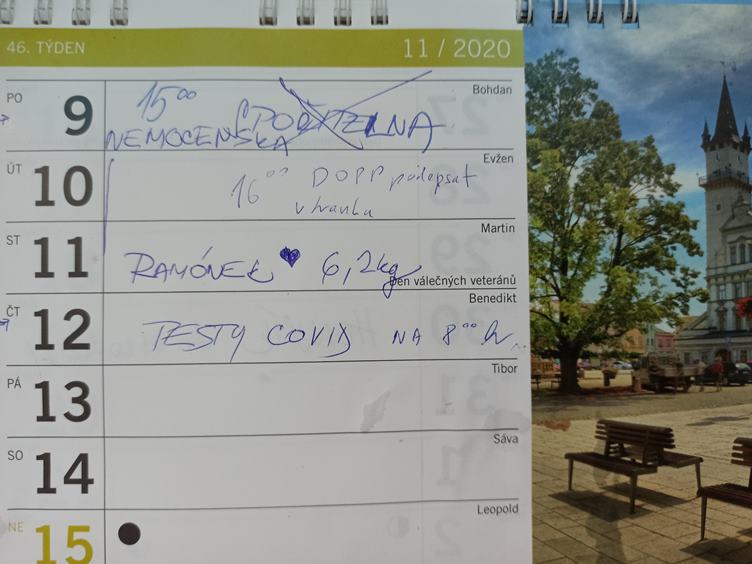 46. TÝDEN 11 / 2020
PO 9 Bohdan
15⁰⁰ SPOŘITELNA
NEMOCENSKÁ
ÚT 10 Evžen
16⁰⁰ DOPP podepsat
ST 11 Martin
RAMÓNEK ♥ 6,2kg
Den válečných veteránů
ČT 12 Benedikt
TESTY COVID NA 8⁰⁰ h
PÁ 13 Tibor
SO 14 Sáva
NE 15 Leopold